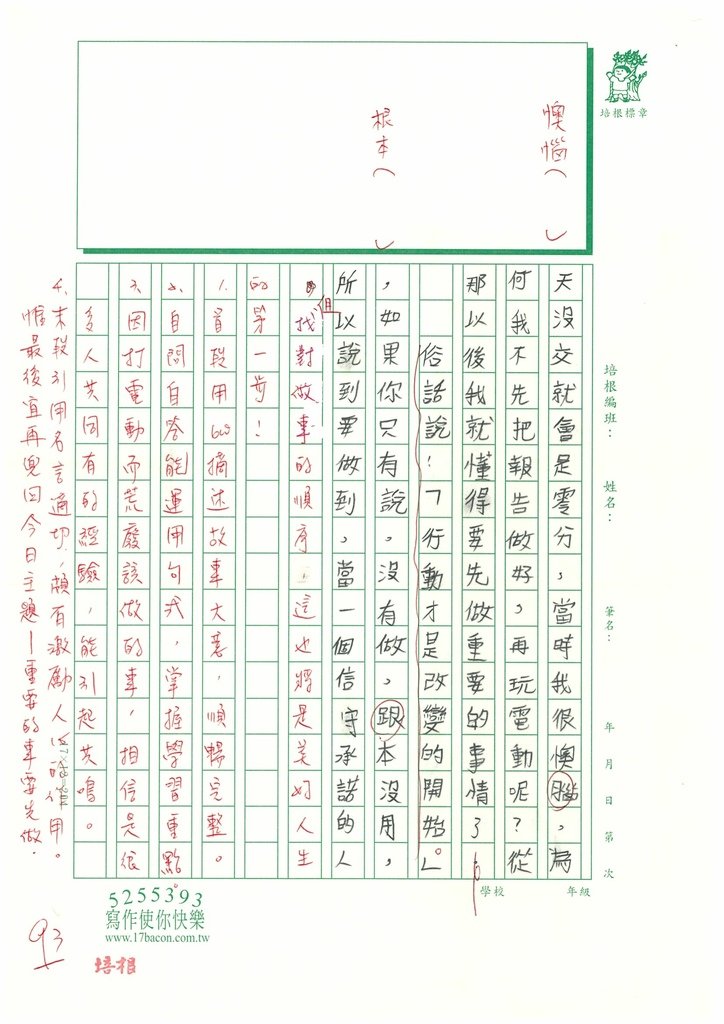 懊惱（ ）
根本（ ）
培根標章
培根編班：
姓名：
筆名：
年 月 日 第 次
天沒交就會是零分，當時我很懊腦，為
何我不先把報告做好，再玩電動呢？從
那以後我就懂得要先做重要的事情了。
俗話說！「行動才是改變的開始。」
，如果你只有說。沒有做，跟本沒用，
所以說到要做到。當一個信守承諾的人，
但找對做事的順序，這也將是美好人生
的第一步！
1.首段用6W摘述故事大意，順暢完整。
2.自問自答能運用句式，掌握學習重點。
3.因打電動而荒廢該做的事，相信是很
多人共同有的經驗，能引起共鳴。
4.末段引用名言適切，頗有激勵人心的作用。
惟最後宜再兜回今日主題－重要的事要先做．
學校
年級
5255393
寫作使你快樂
www.17bacon.com.tw
培根
93